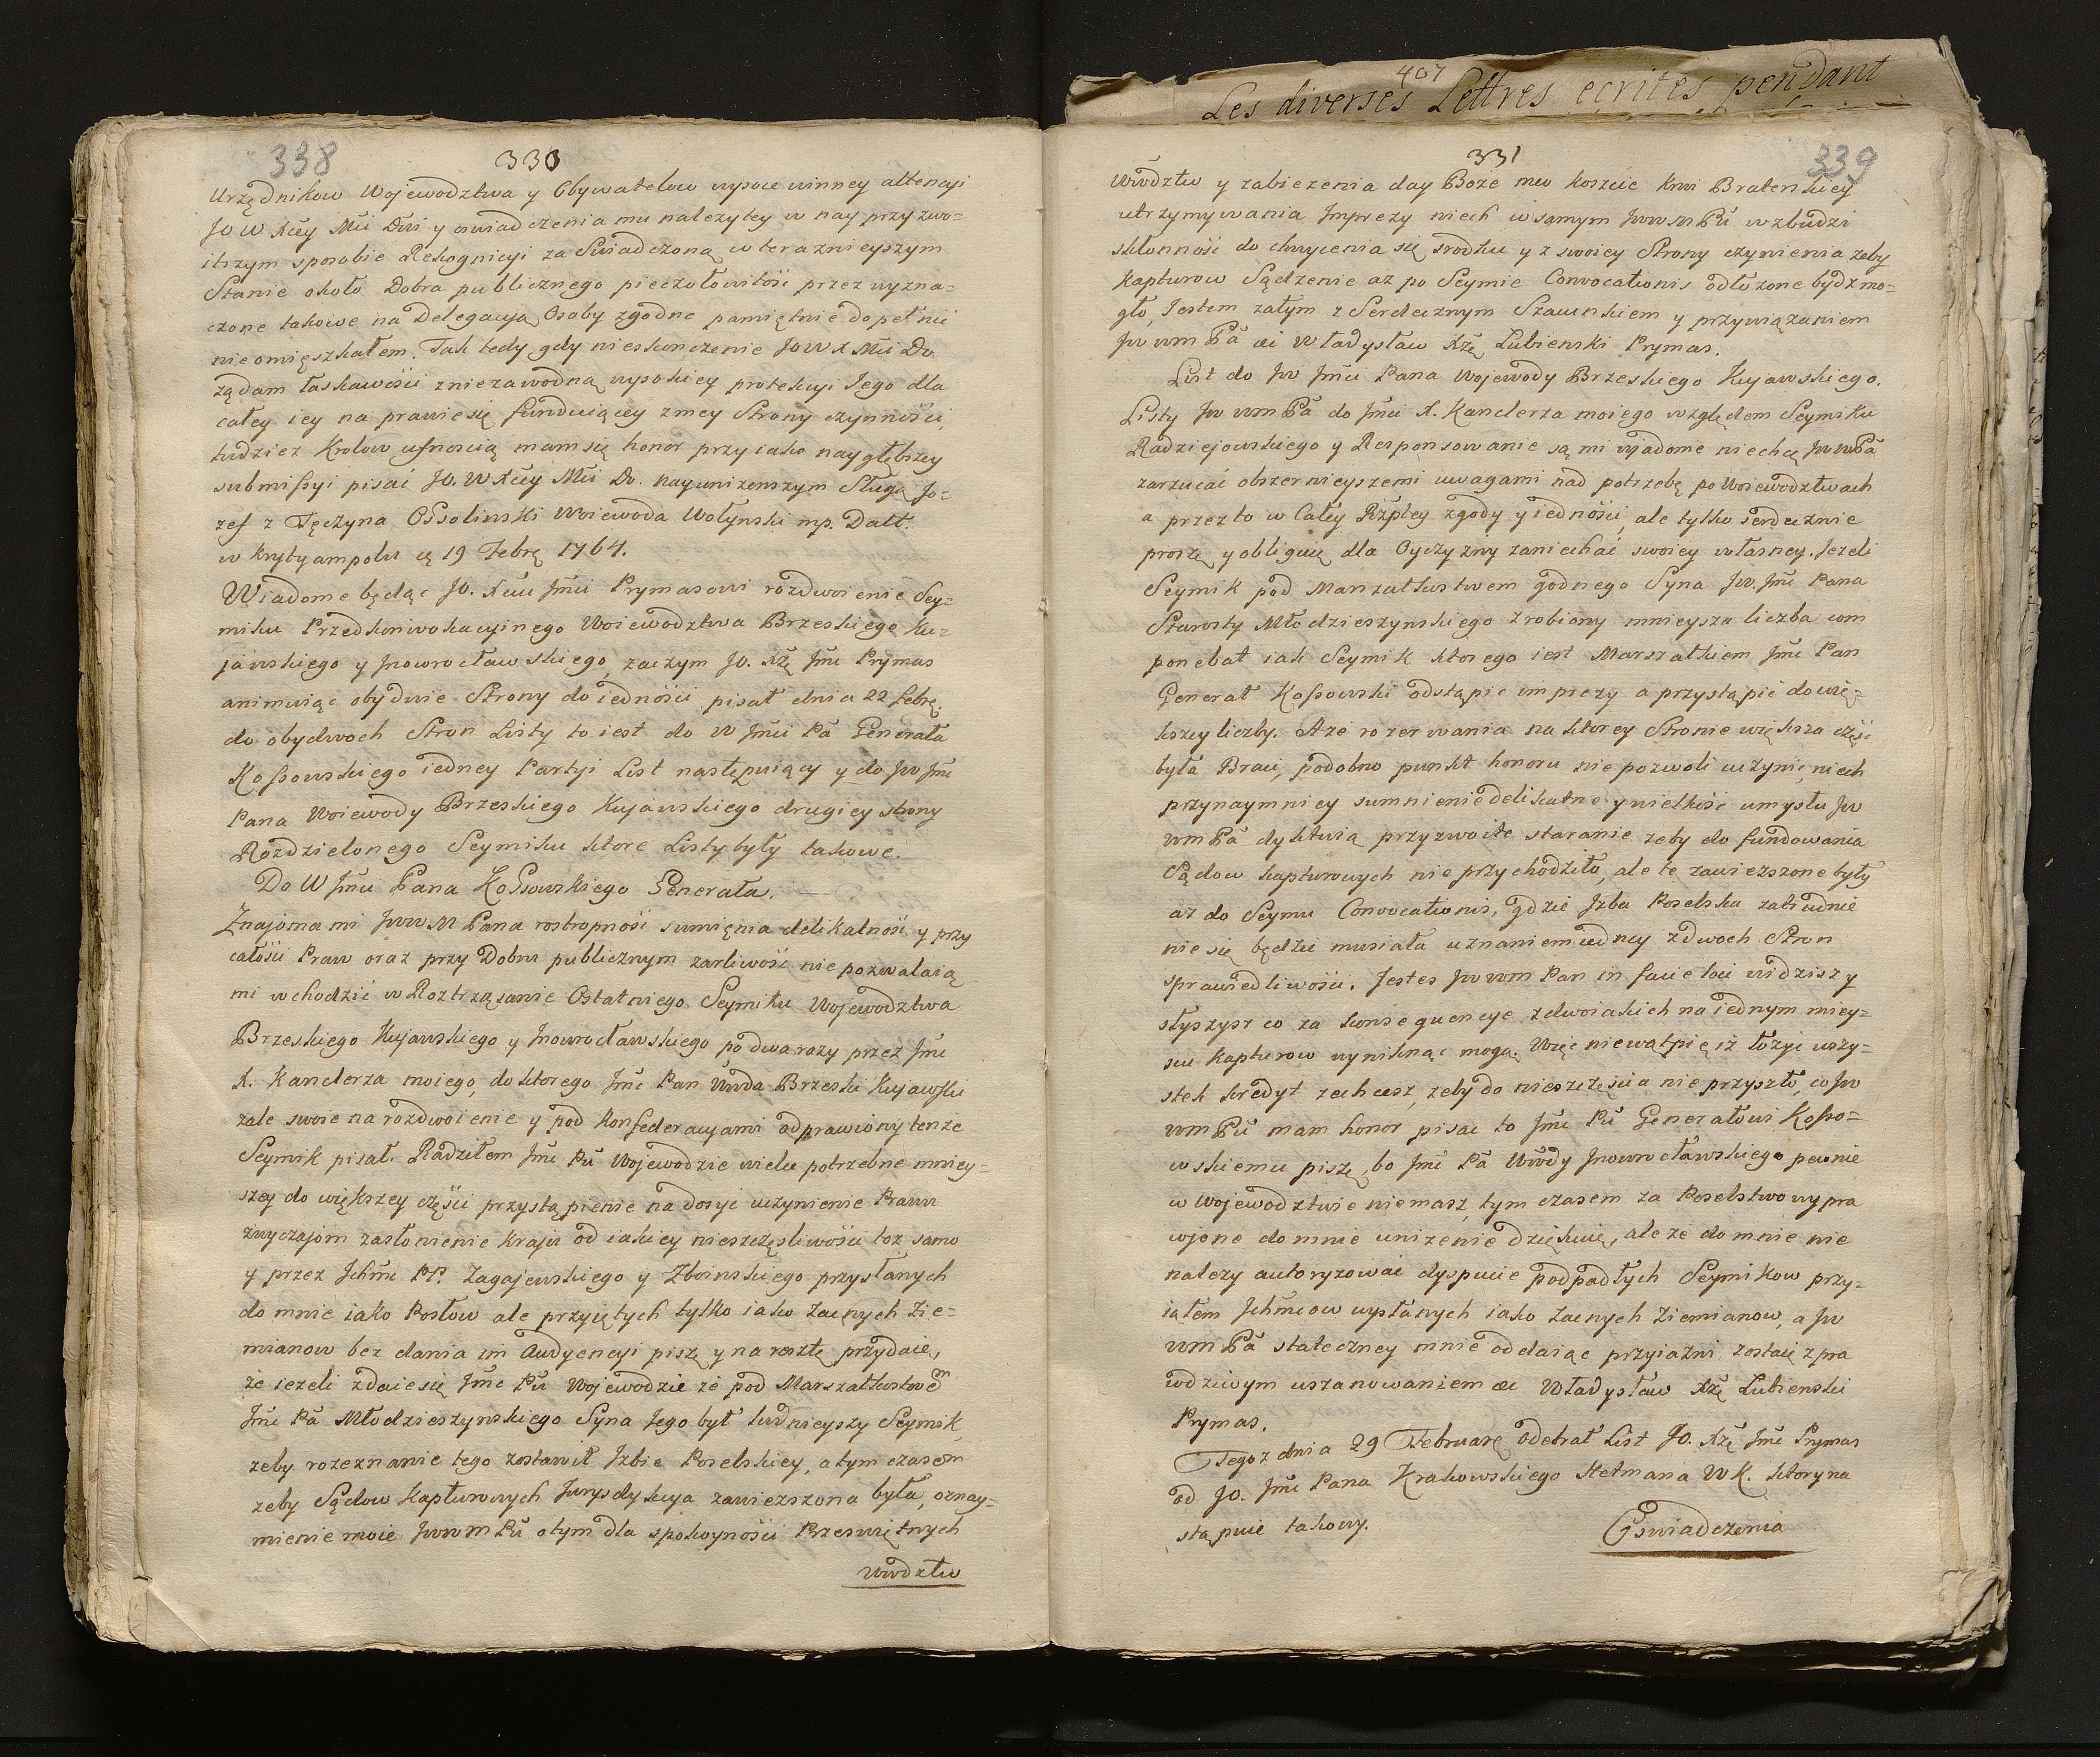 338
330
Urzędnikow Wojewodztwa y Obywatelow wysoce winney attencyi
JO W Xcey Mci Dwi y oswiadczenia mu nalezytey w nay przyzwo=
itszym sposobie Rekognicyi za Swiadczoną w teraznieyszym
Stanie około Dobra publicznego pieczołowitośc przez wyzna=
czone takowe na Delegacyą Osoby zgodne pamiętnie dopełnic
nieomięszkałem. Tak tedy gdy nieskonczenie JO W X Mci Do.
żądam łaskawości zniezawodną wysokiey protekcyi Jego dla
całey iey na prawie się funduiącey zmey Strony czynności,
tudziez Krolow ufnoscią mam się honor przy iako naygłębszey
submissyi pisać JO. W Xcey Mci Do. nayunizenszym Sługą Jo=
zef z Tęczyna Ossolinski Woiewoda Wołynski mp. Datt.
w Krystyampolu ą 19 Febrę 1764.
Wiadome będąc JO. Xciu Jmci Prymasowi rozdwoienie Sey=
miku Przedkonwokacyinego Woiewodztwa Brzeskiego Ku=
jawskiego y Jnowrocławskiego, zaczym JO. Xżę Jmc Prymas
animuiąc obydwie Strony do iedności pisał dnia 22 Febrę.
do obydwoch Stron Listy to iest do W Jmci Pa Generała
Kossowskiego iedney Partyi List następuiący y do Jw Jmc
Pana Woiewody Brzeskiego Kujawskiego drugiey strony
Rozdzielonego Seymiku ktore Listy były takowe.
Do W Jmci Pana Kossowskiego Generała.
Znajoma mi Jww M Pana rostropnosć sumięnia delikatnosć y przy
całości Praw oraz przy Dobru publicznym zarliwość nie pozwalaią
mi wchodzić w Roztrząsanie Ostatniego Seymiku Wojewodztwa
Brzeskiego Kujawskiego y Jnowrocławskiego po dwa razy przez Jmc
X. Kanclerza moiego, do ktorego Jmc Pan Wwda Brzeski Kujawski
zale swoie na rozdwoienie y pod Konfederacyami odprawiony tenże
Seymik pisał. Radziłem Jmc Pu Wojewodzie wielce potrzebne mniey=
szey do większey części przystąpienie na dosyc uczynienie Prawu
zwyczajom zasłonienie kraju od iakiey nieszczęsliwości toz samo
y przez Jchmc PP. Zagajewskiego y Zboinskiego przysłanych
do mnie iako Posłow ale przyiętych tylko iako zacnych Zie=
mianow bez dania im Audyencyi piszę y na resztę przydaię,
że iezeli zdaie się Jmc Pu Wojewodzie ze pod Marszałkostwem
Jmc Pa Młodzieszynskiego Syna Jego był ludnieyszy Seymik,
zeby rozeznanie tego zostawił Jzbie Poselskiey, a tym czasem
zeby Sądow Kapturowych Jurysdykcya zawieszona była, oznay=
mienie moie Jwwm Pu o tym dla spokoyności Przeswiętnych
Wwdztw
407
Les diverses Lettres ecrites pendant
331
339
Wwdztw y zabiezenia day Boże nie koszcie krwi Bratenskiey
utrzymywania Jmprezy niech w samym Jwwm Pu wzbudzi
skłonność do chwycenia się srodku y z swoiey Strony czynienia zeby
Kapturow Sądzenie az po Seymie Convocationis odłozone bydz mo=
gło, Jestem zatym z Serdecznym Szacunkiem y przywiązaniem
Jw wm Pa &c Władysław Xżę Łubienski Prymas.
List do Jw Jmci Pana Wojewody Brzeskiego Kujawskiego.
Listy Jw wm Pa do Jmci X. Kanclerza moiego względem Seymiku
Radziejowskiego y Responsowanie są mi wjadome niechcę Jw wPa
zarzucać obszernieyszemi uwagami nad potrzebę po Woiewodztwach
a przez to w Całey Rzpltey zgody y iedności, ale tylko serdecznie
proszę y obliguię dla Oyczyzny zaniechać swoiey własney. Jezeli
Seymik pod Marszałkustwem godnego Syna Jw. Jmc Pana
Starosty Młodzieszynskiego zrobiony mnieysza liczba com
ponebat iak Seymik ktorego iest Marszałkiem Jmc Pan
Generał Kossowski odstąpic imprezy a przystąpić do wię=
kszey liczby. A ze rozerwania na ktorey Stronie większa częsć
była Braci, podobno punkt honoru nie pozwoli uczynic, niech
przynaymniey sumnienie delikatne y wielkośc umysłu Jw
wm Pa dyktuią przyzwoite staranie zeby do fundowania
Sądow kapturowych nie przychodziło, ale te zawieszone były
az do Seymu Convocationis, gdzie Jzba Poselska zatrudnie
nie się będzie musiała uznaniem iedney z dwoch Stron
sprawiedliwości. Jestes Jw wm Pan in facie loci widzisz y
słyszysz co za konsequencye z dwoiakich na iednym miey=
scu kapturow wyniknąc mogą. Więc niewątpię iz łożyc wszy=
stek kredyt zechcesz, zeby do nieszczęscia nie przyszło, co Jw
wm Pu mam honor pisac to Jmc Pu Generałowi Kosso=
wskiemu piszę, bo Jmc Pa Wwdy Jnowrocławskiego pewnie
w Wojewodztwie niemasz, tym czasem za Poselstwo wypra
wjone do mnie unizenie dziękuię, ale ze do mnie nie
nalezy autoryzowac dyspucie podpadłych Seymikow przy=
iąłem Jchmciow wysłanych iako zacnych Ziemianow, a Jw
wm Pa stateczney mnie oddaiąc przyiazni zostaię z pra
wdziwym uszanowaniem &c Władysław Xżę Łubienski
Prymas.
Tegoz dnia 29 Februarę odebrał List JO. Xżę Jmc Prymas
od JO. Jmc Pana Krakowskiego Hetmana WK. ktory na
stąpuie takowy.
Oswiadczenia